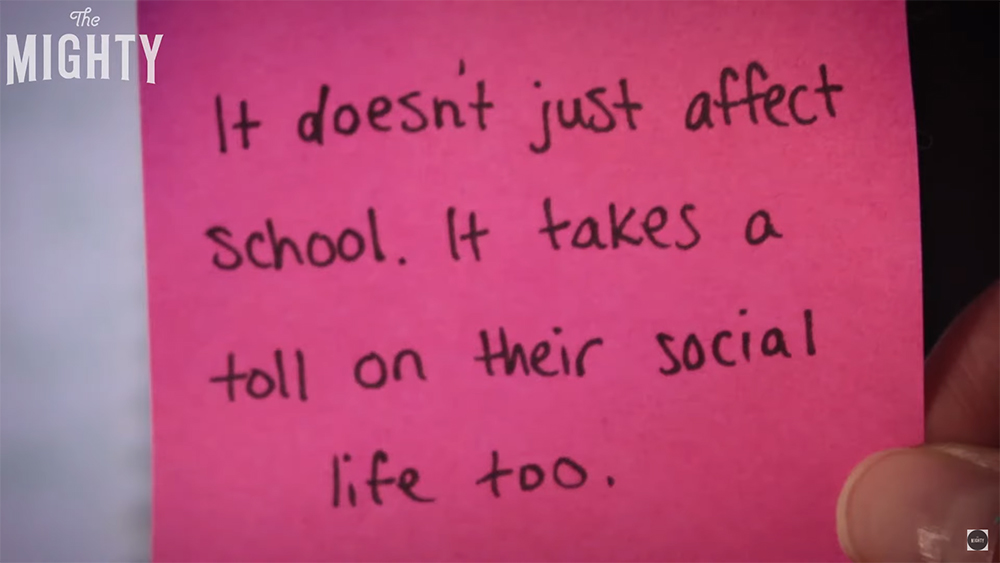 The
MIGHTY
It doesn't just affect
school. It takes a
toll on their social
life too.
MIGHTY